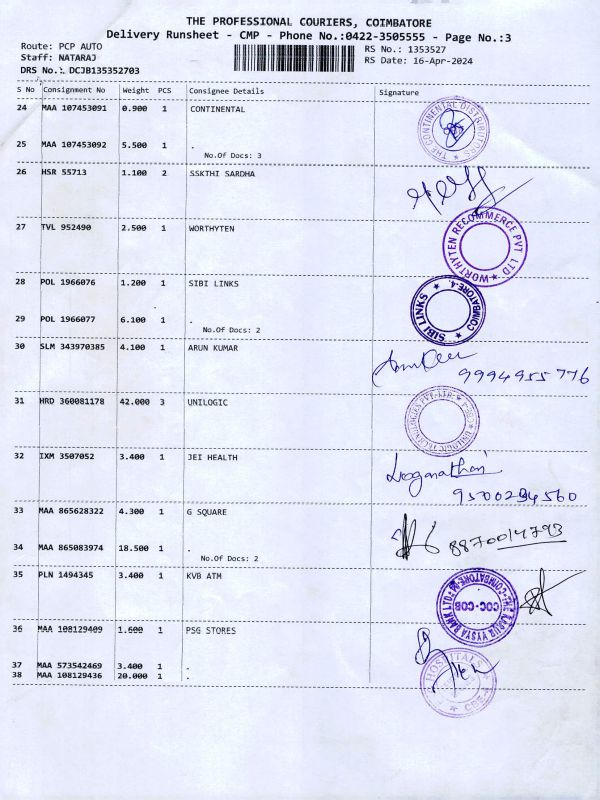 THE PROFESSIONAL COURIERS, COIMBATORE
Delivery Runsheet - CMP - Phone No.:0422-3505555 - Page No.:3
Route: PCP AUTO RS No.: 1353527
Staff: NATARAJ RS Date: 16-Apr-2024
DRS No.: DCJB135352703
S No Consignment No Weight PCS Consignee Details Signature
24 MAA 107453091 0.900 1 CONTINENTAL
THE CONTINENTAL DISTRIBUTORS
25 MAA 107453092 5.500 1 .
No.Of Docs: 3
26 HSR 55713 1.100 2 SSKTHI SARDHA
27 TVL 952490 2.500 1 WORTHYTEN
WORTHYTEN RECOMMERCE PVT LTD
28 POL 1966076 1.200 1 SIBI LINKS
SIBI LINKS COIMBATORE-4.
29 POL 1966077 6.100 1 .
No.Of Docs: 2
30 SLM 343970385 4.100 1 ARUN KUMAR
9994955776
31 HRD 360081178 42.000 3 UNILOGIC
32 IXM 3507052 3.400 1 JEI HEALTH
Loganathan
9500294560
33 MAA 865628322 4.300 1 G SQUARE
8870014793
34 MAA 865083974 18.500 1 .
No.Of Docs: 2
35 PLN 1494345 3.400 1 KVB ATM
THE KARUR VYSYA BANK LTD
COC-COB
36 MAA 108129409 1.600 1 PSG STORES
37 MAA 573542469 3.400 1 .
38 MAA 108129436 20.000 1 .
HOSPITALS